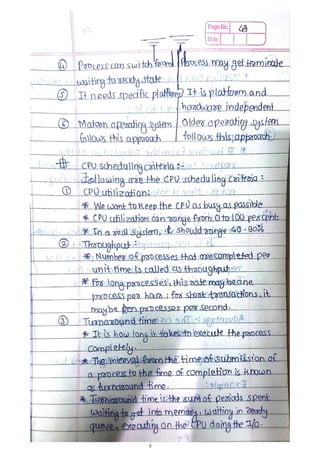 Page No. 49
Date
④ Process can switch from Process may get terminate
waiting to ready state
⑤ It needs specific platform It is platform and
hardware independent
⑥ Modern operating system Older operating system
follows this approach follows this approach
# CPU scheduling criteria :-
Following are the CPU scheduling criteria :
① CPU utilization:
* We want to keep the CPU as busy as possible
* CPU utilization can range from 0 to 100 percent
* In a real system, it should range 40-90%
② Throughput :
* Number of processes that are completed per
unit time is called as throughput
* For long processes, this rate may be one
process per hour ; for short transactions, it
may be processes per second.
③ Turnaround time :
* It is how long it takes to execute the process
completely.
* The interval from the time of submission of
a process to the time of completion is known
as turnaround time.
* Turnaround time is the sum of periods spent
waiting to get into memory, waiting in ready
queue, executing on the CPU doing the I/O.